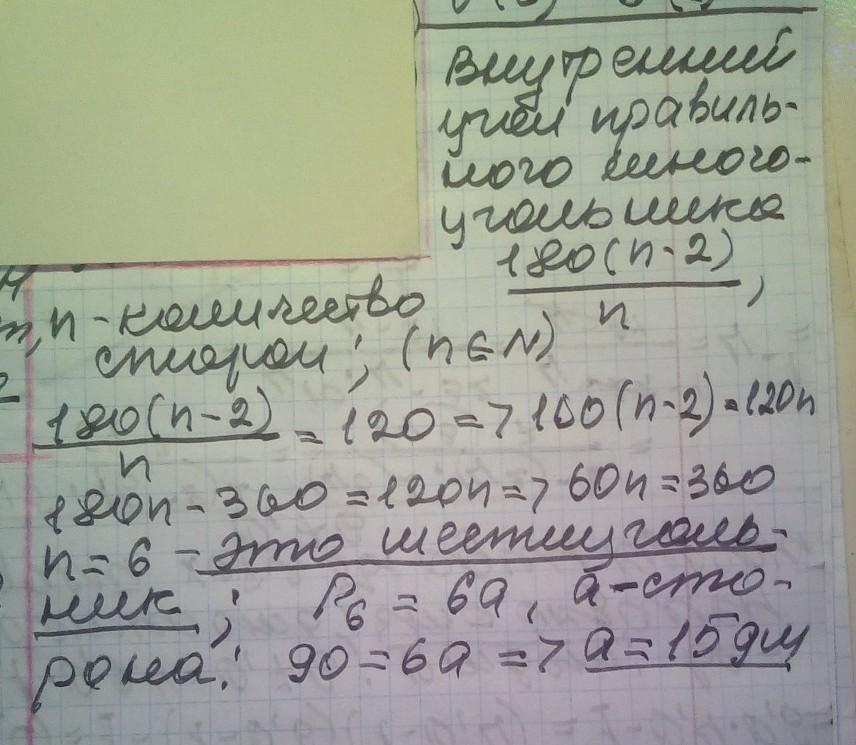 Внутренний
угол правиль-
ного много-
угольника
180(n-2)/n ,
n - количество
сторон; (n∈N)
180(n-2)/n = 120 => 180(n-2) = 120n
180n - 360 = 120n => 60n = 360
n = 6 - это шестиуголь-
ник; P₆ = 6a, a - сто-
рона: 90 = 6a => a = 15 дм